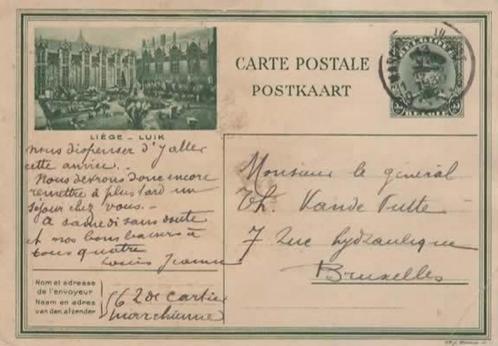 CARTE POSTALE
POSTKAART
LIÉGE - LUIK
nous dispenser d'y aller
cette année.
Nous devrons donc encore
remettre à plus tard un
séjour chez vous.
A samedi sans doute
et nos bons baisers à
tous quatre
Louis Jeanne
Nom et adresse
de l'envoyeur
Naam en adres
van den afzender
56 2 de Cartier
Marchienne
Monsieur le général
Th. Vande Putte
7 Rue hydraulique
Bruxelles
BELGIQUE
BELGIË